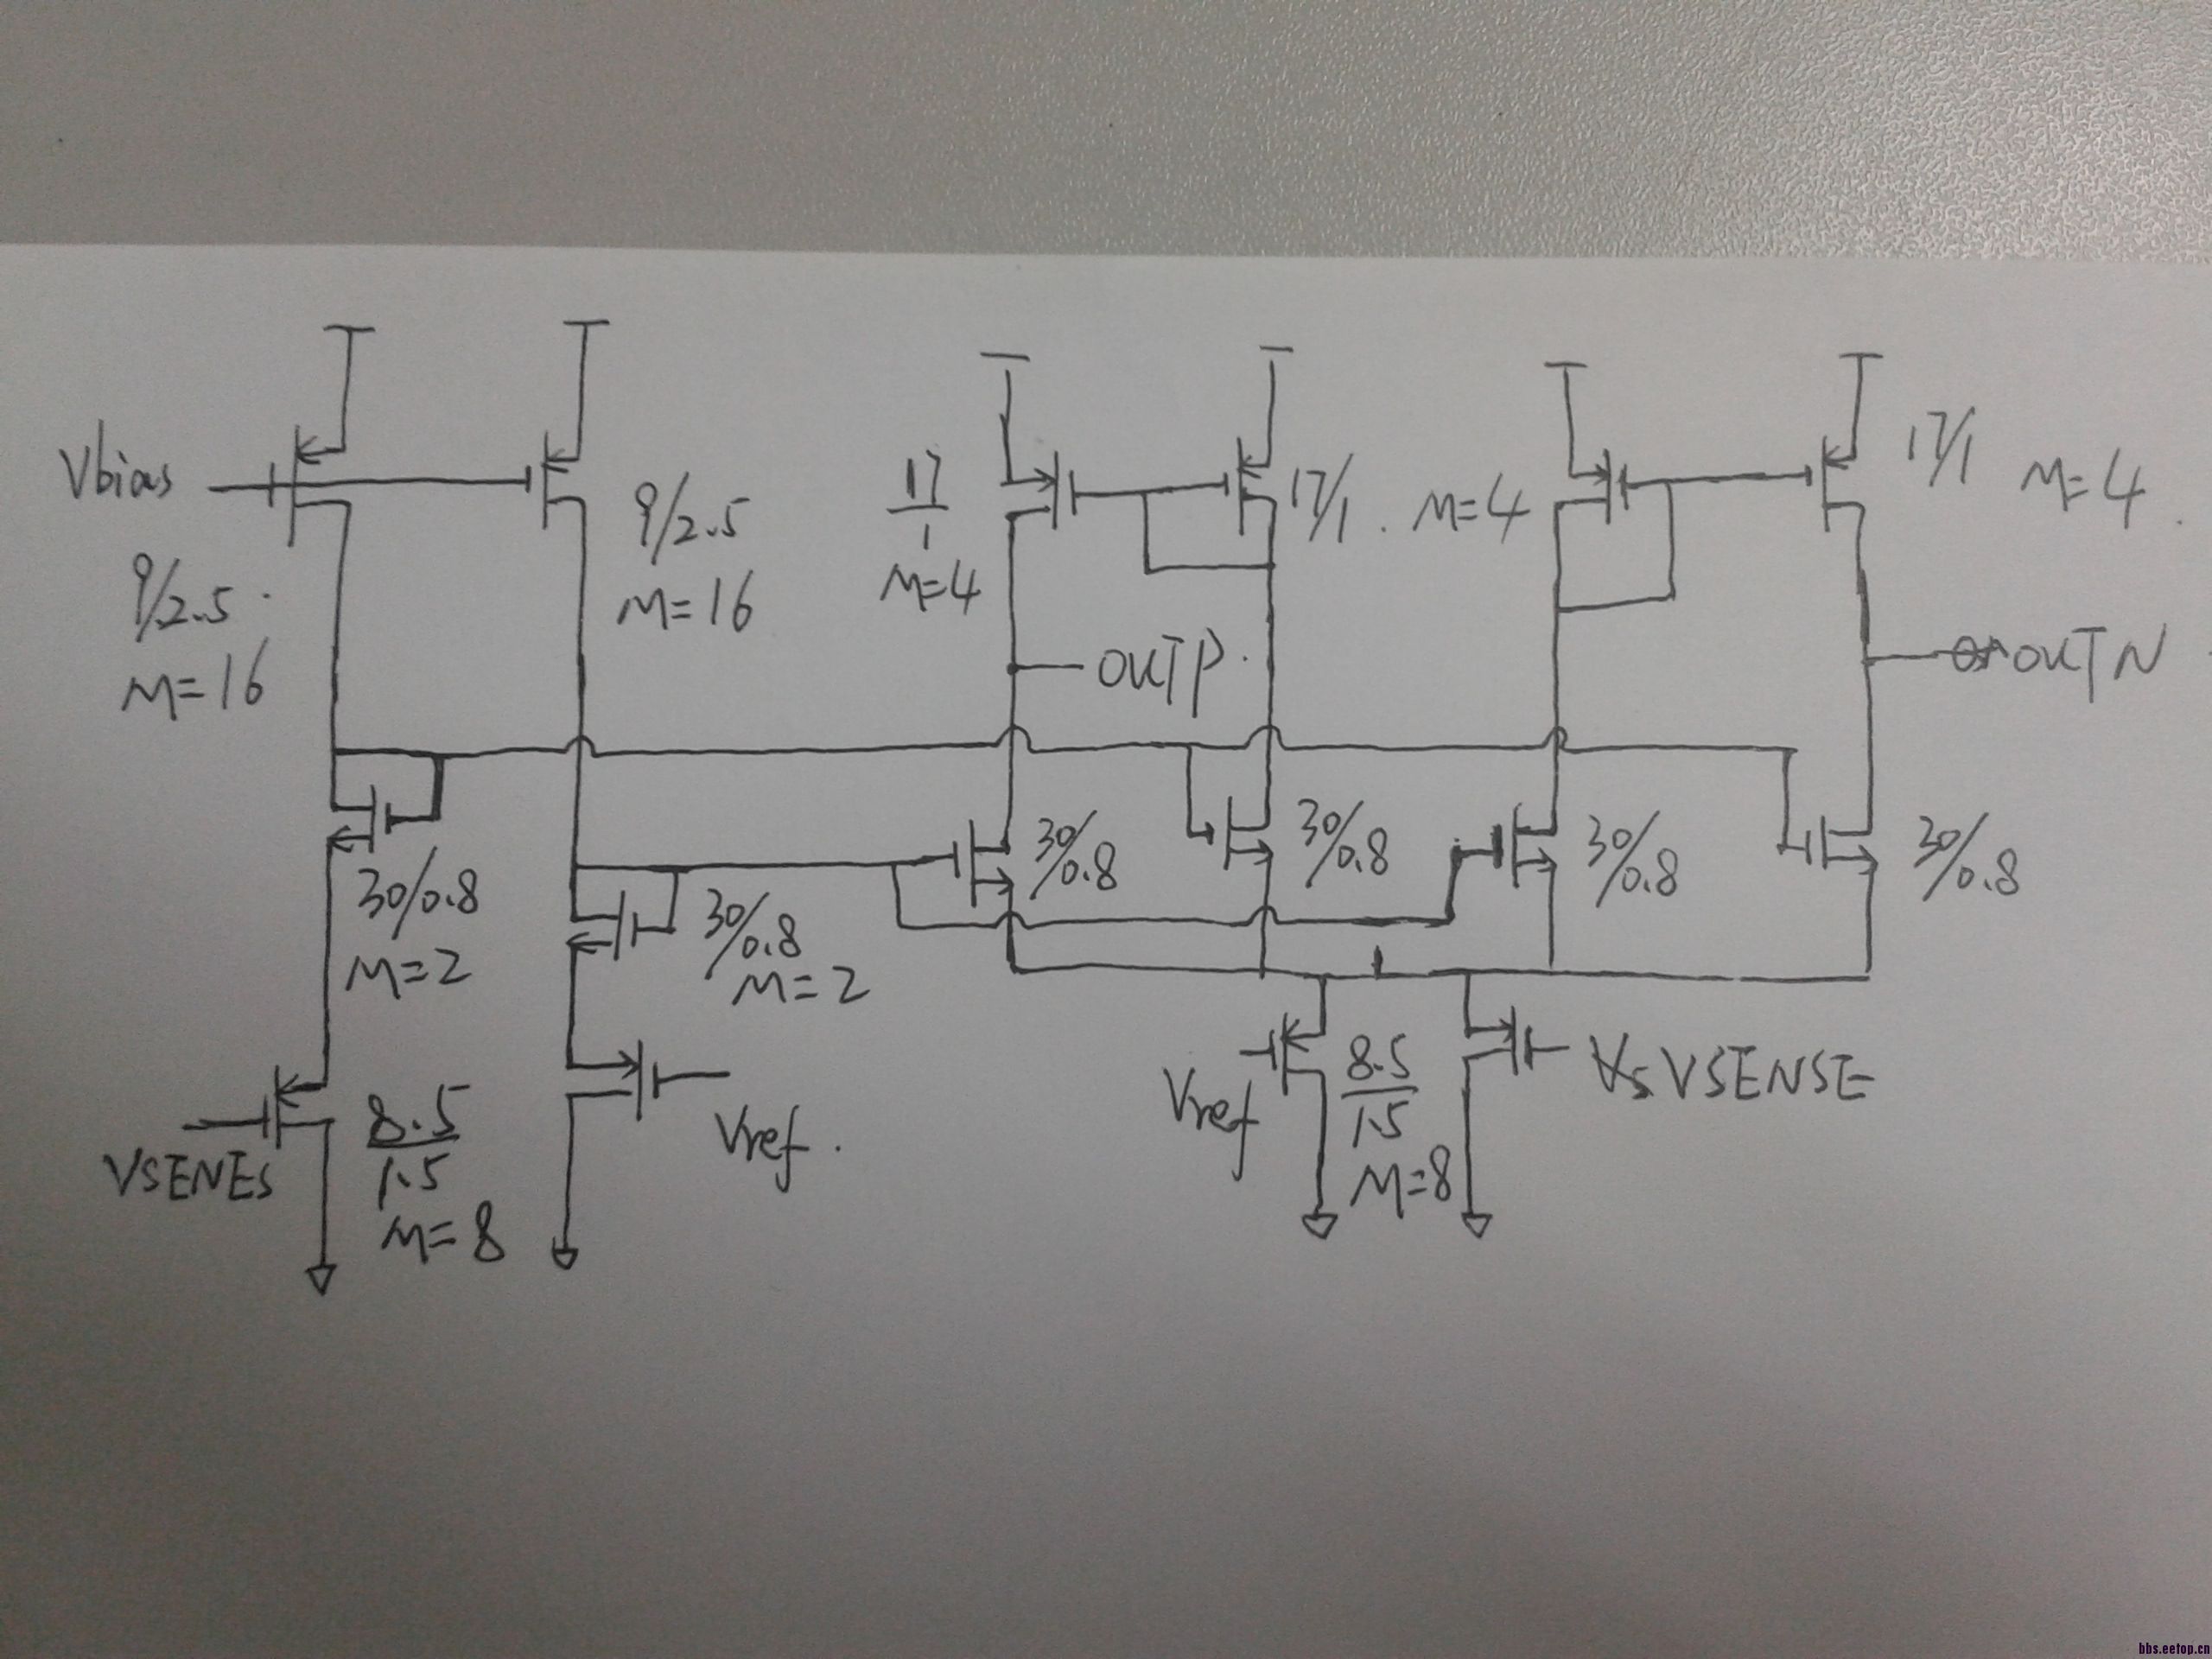 Vbias
9/2.5
M=16
9/2.5
M=16
17
1
M=4
17/1
M=4
17/1
M=4
OUTP
OUTN
30/0.8
M=2
30/0.8
M=2
30/0.8
30/0.8
30/0.8
30/0.8
VSENES
8.5
1.5
M=8
Vref
Vref
8.5
1.5
M=8
VSENSE
bbs.eetop.cn